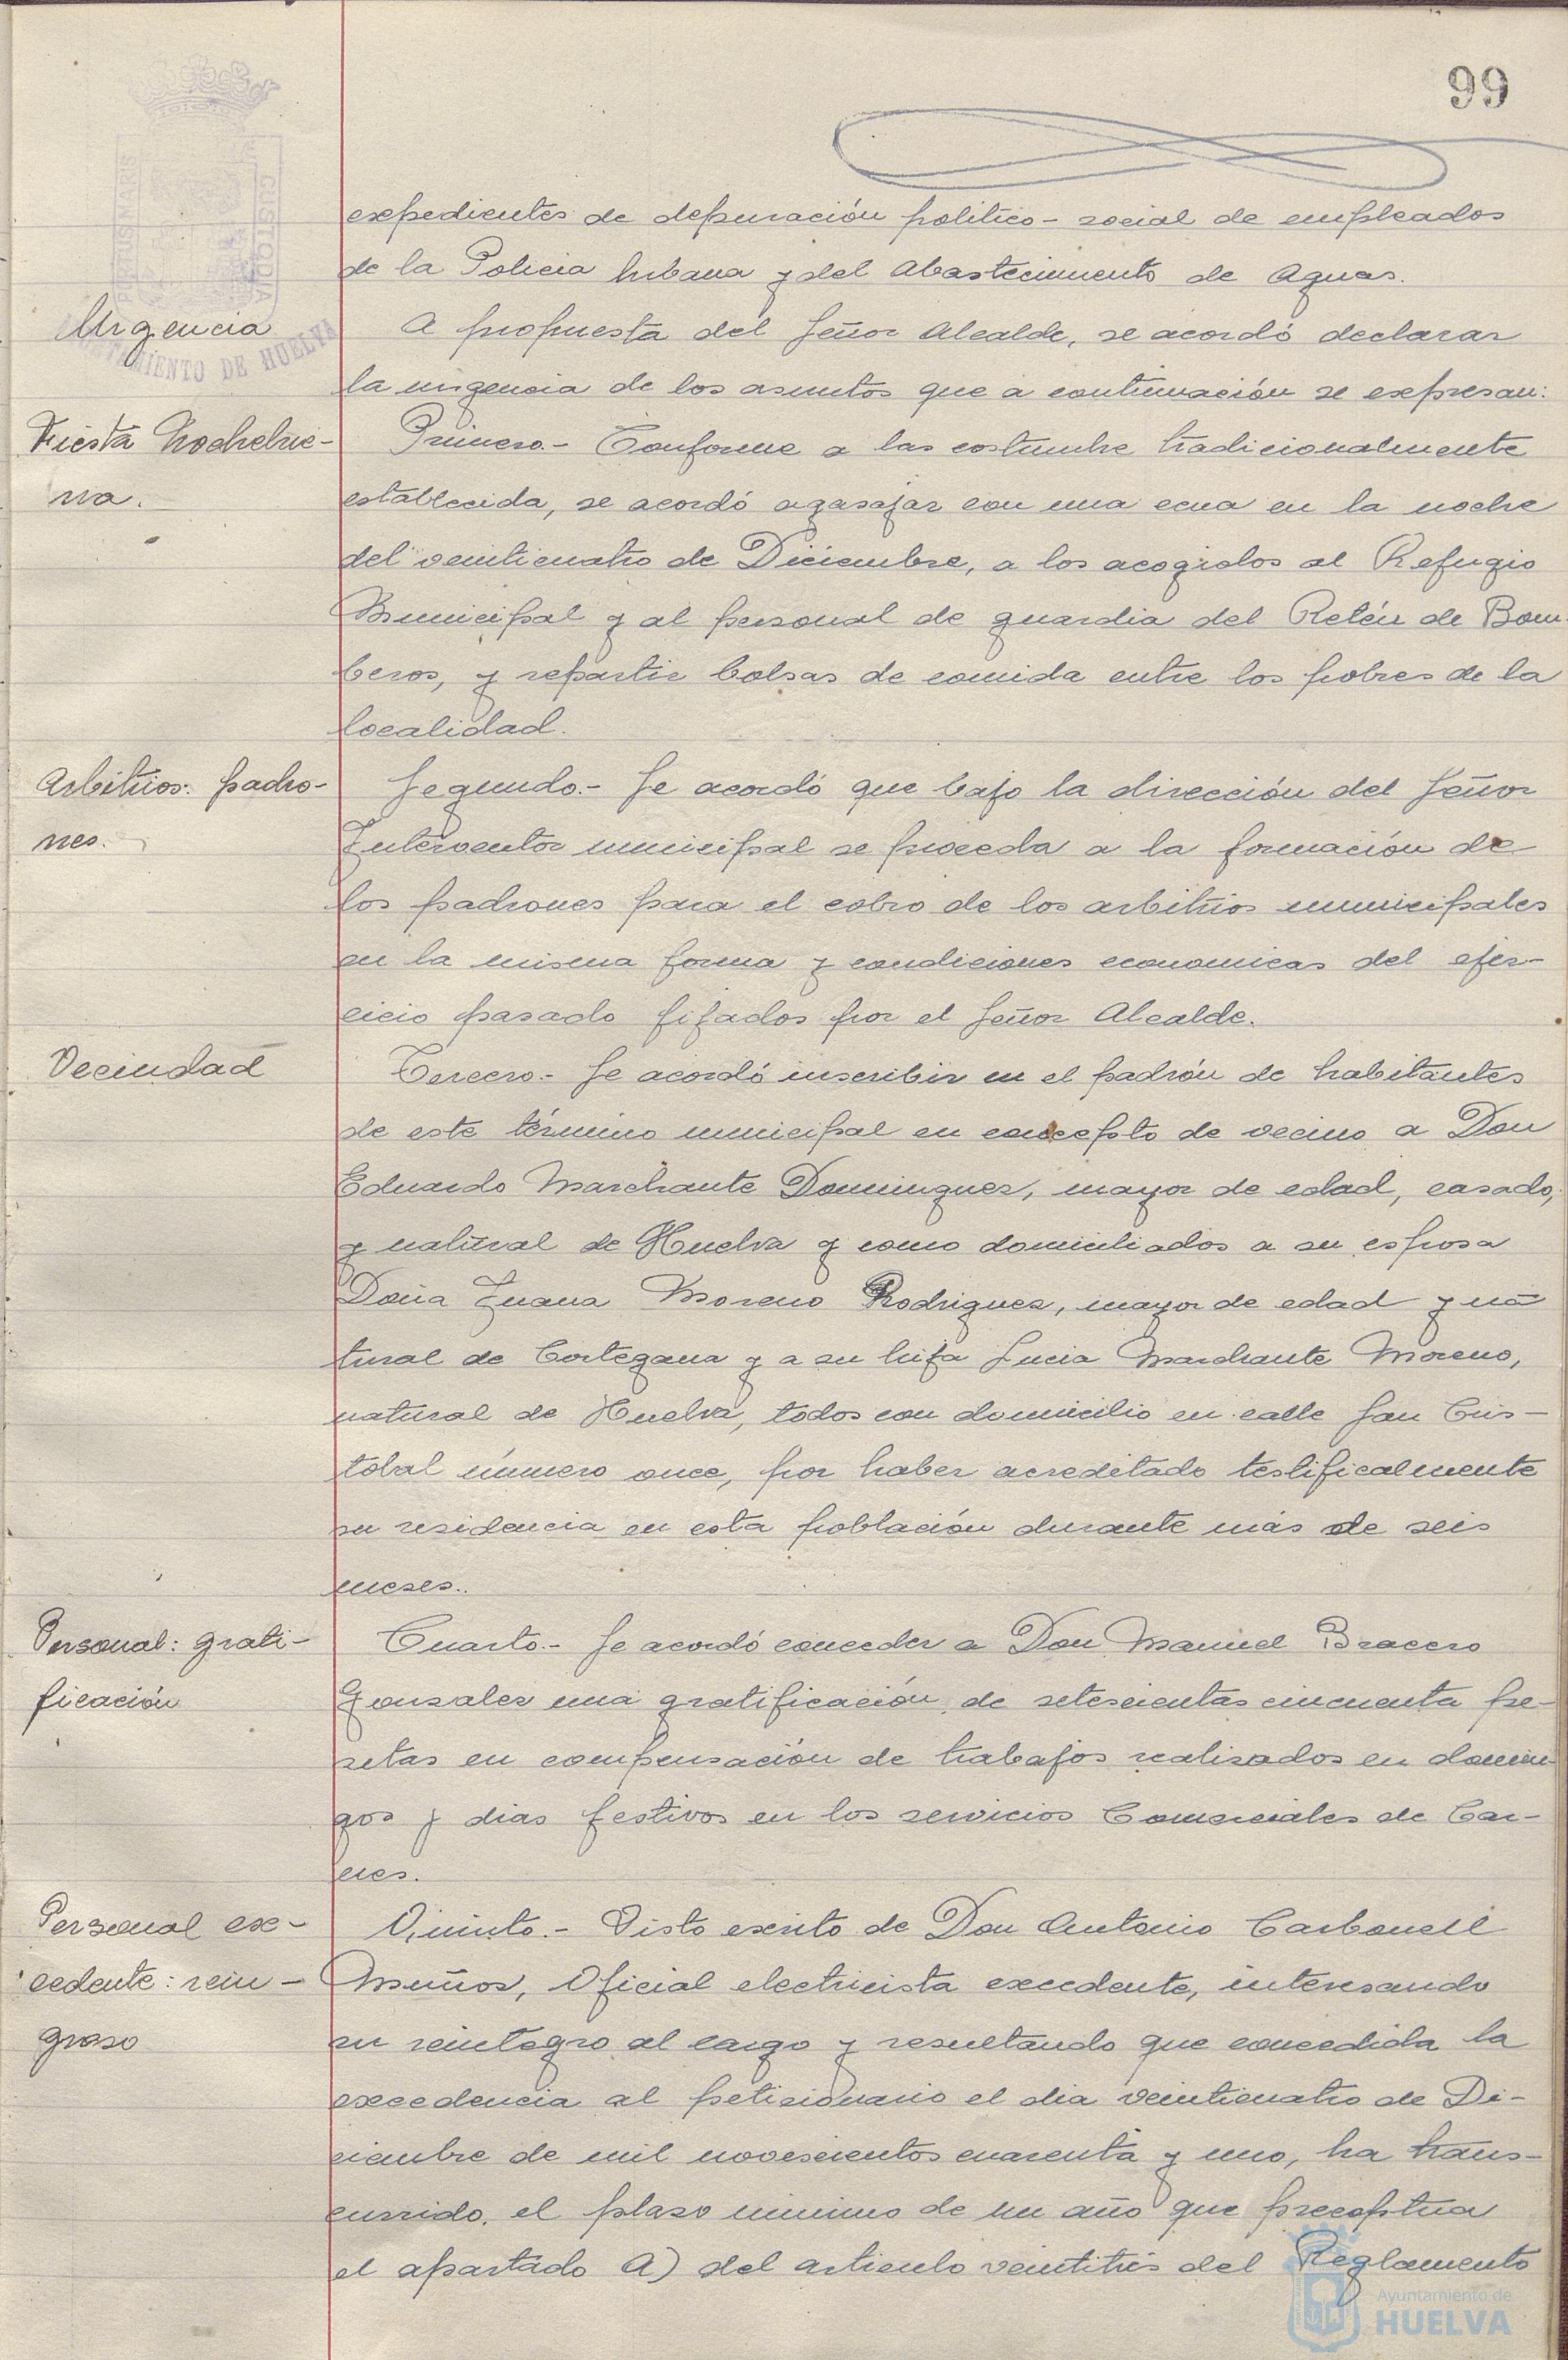 99
expedientes de depuración politico-social de empleados
de la Policia Urbana y del Abastecimiento de Aguas.
Urgencia
A propuesta del Señor Alcalde, se acordó declarar
la urgencia de los asuntos que a continuación se expresan:
Fiesta Nochebue-
na.
Primero.- Conforme a las costumbre tradicionalmente
establecida, se acordó agasajar con una cena en la noche
del veinticuatro de Diciembre, a los acogidos al Refugio
Municipal y al personal de guardia del Retén de Bom-
beros, y repartir bolsas de comida entre los pobres de la
localidad.
Arbitrios: padro-
nes.
Segundo.- Se acordó que bajo la dirección del Señor
Interventor municipal se proceda a la formación de
los padrones para el cobro de los arbitrios municipales
en la misma forma y condiciones economicas del ejer-
cicio pasado fijados por el Señor Alcalde.
Vecindad
Tercero.- Se acordó inscribir en el padrón de habitantes
de este término municipal en concepto de vecino a Don
Eduardo Marchante Dominguez, mayor de edad, casado,
y natural de Huelva y como domiciliados a su esposa
Doña Juana Moreno Rodriguez, mayor de edad y na
tural de Cortegana y a su hija Lucia Marchante Moreno,
natural de Huelva, todos con domicilio en calle San Cris-
tobal número once, por haber acreditado testificalmente
su residencia en esta población durante más de seis
meses.
Personal: grati-
ficación
Cuarto.- Se acordó conceder a Don Manuel Bracero
Gonzalez una gratificación de setecientas cincuenta pe-
setas en compensación de trabajos realizados en domin-
gos y dias festivos en los servicios Comerciales de Car-
nes.
Personal ex-
cedente: rein-
greso
Quinto.- Visto escrito de Don Antonio Carbonell
Muñoz, Oficial electricista excedente, interesando
su reintegro al cargo y resultando que concedida la
excedencia al peticionario el dia veinticuatro de Di-
ciembre de mil novecientos cuarenta y uno, ha trans-
currido el plazo minimo de un año que preceptua
el apartado A) del articulo veintitrés del Reglamento
AYUNTAMIENTO DE HUELVA
Ayuntamiento de
HUELVA